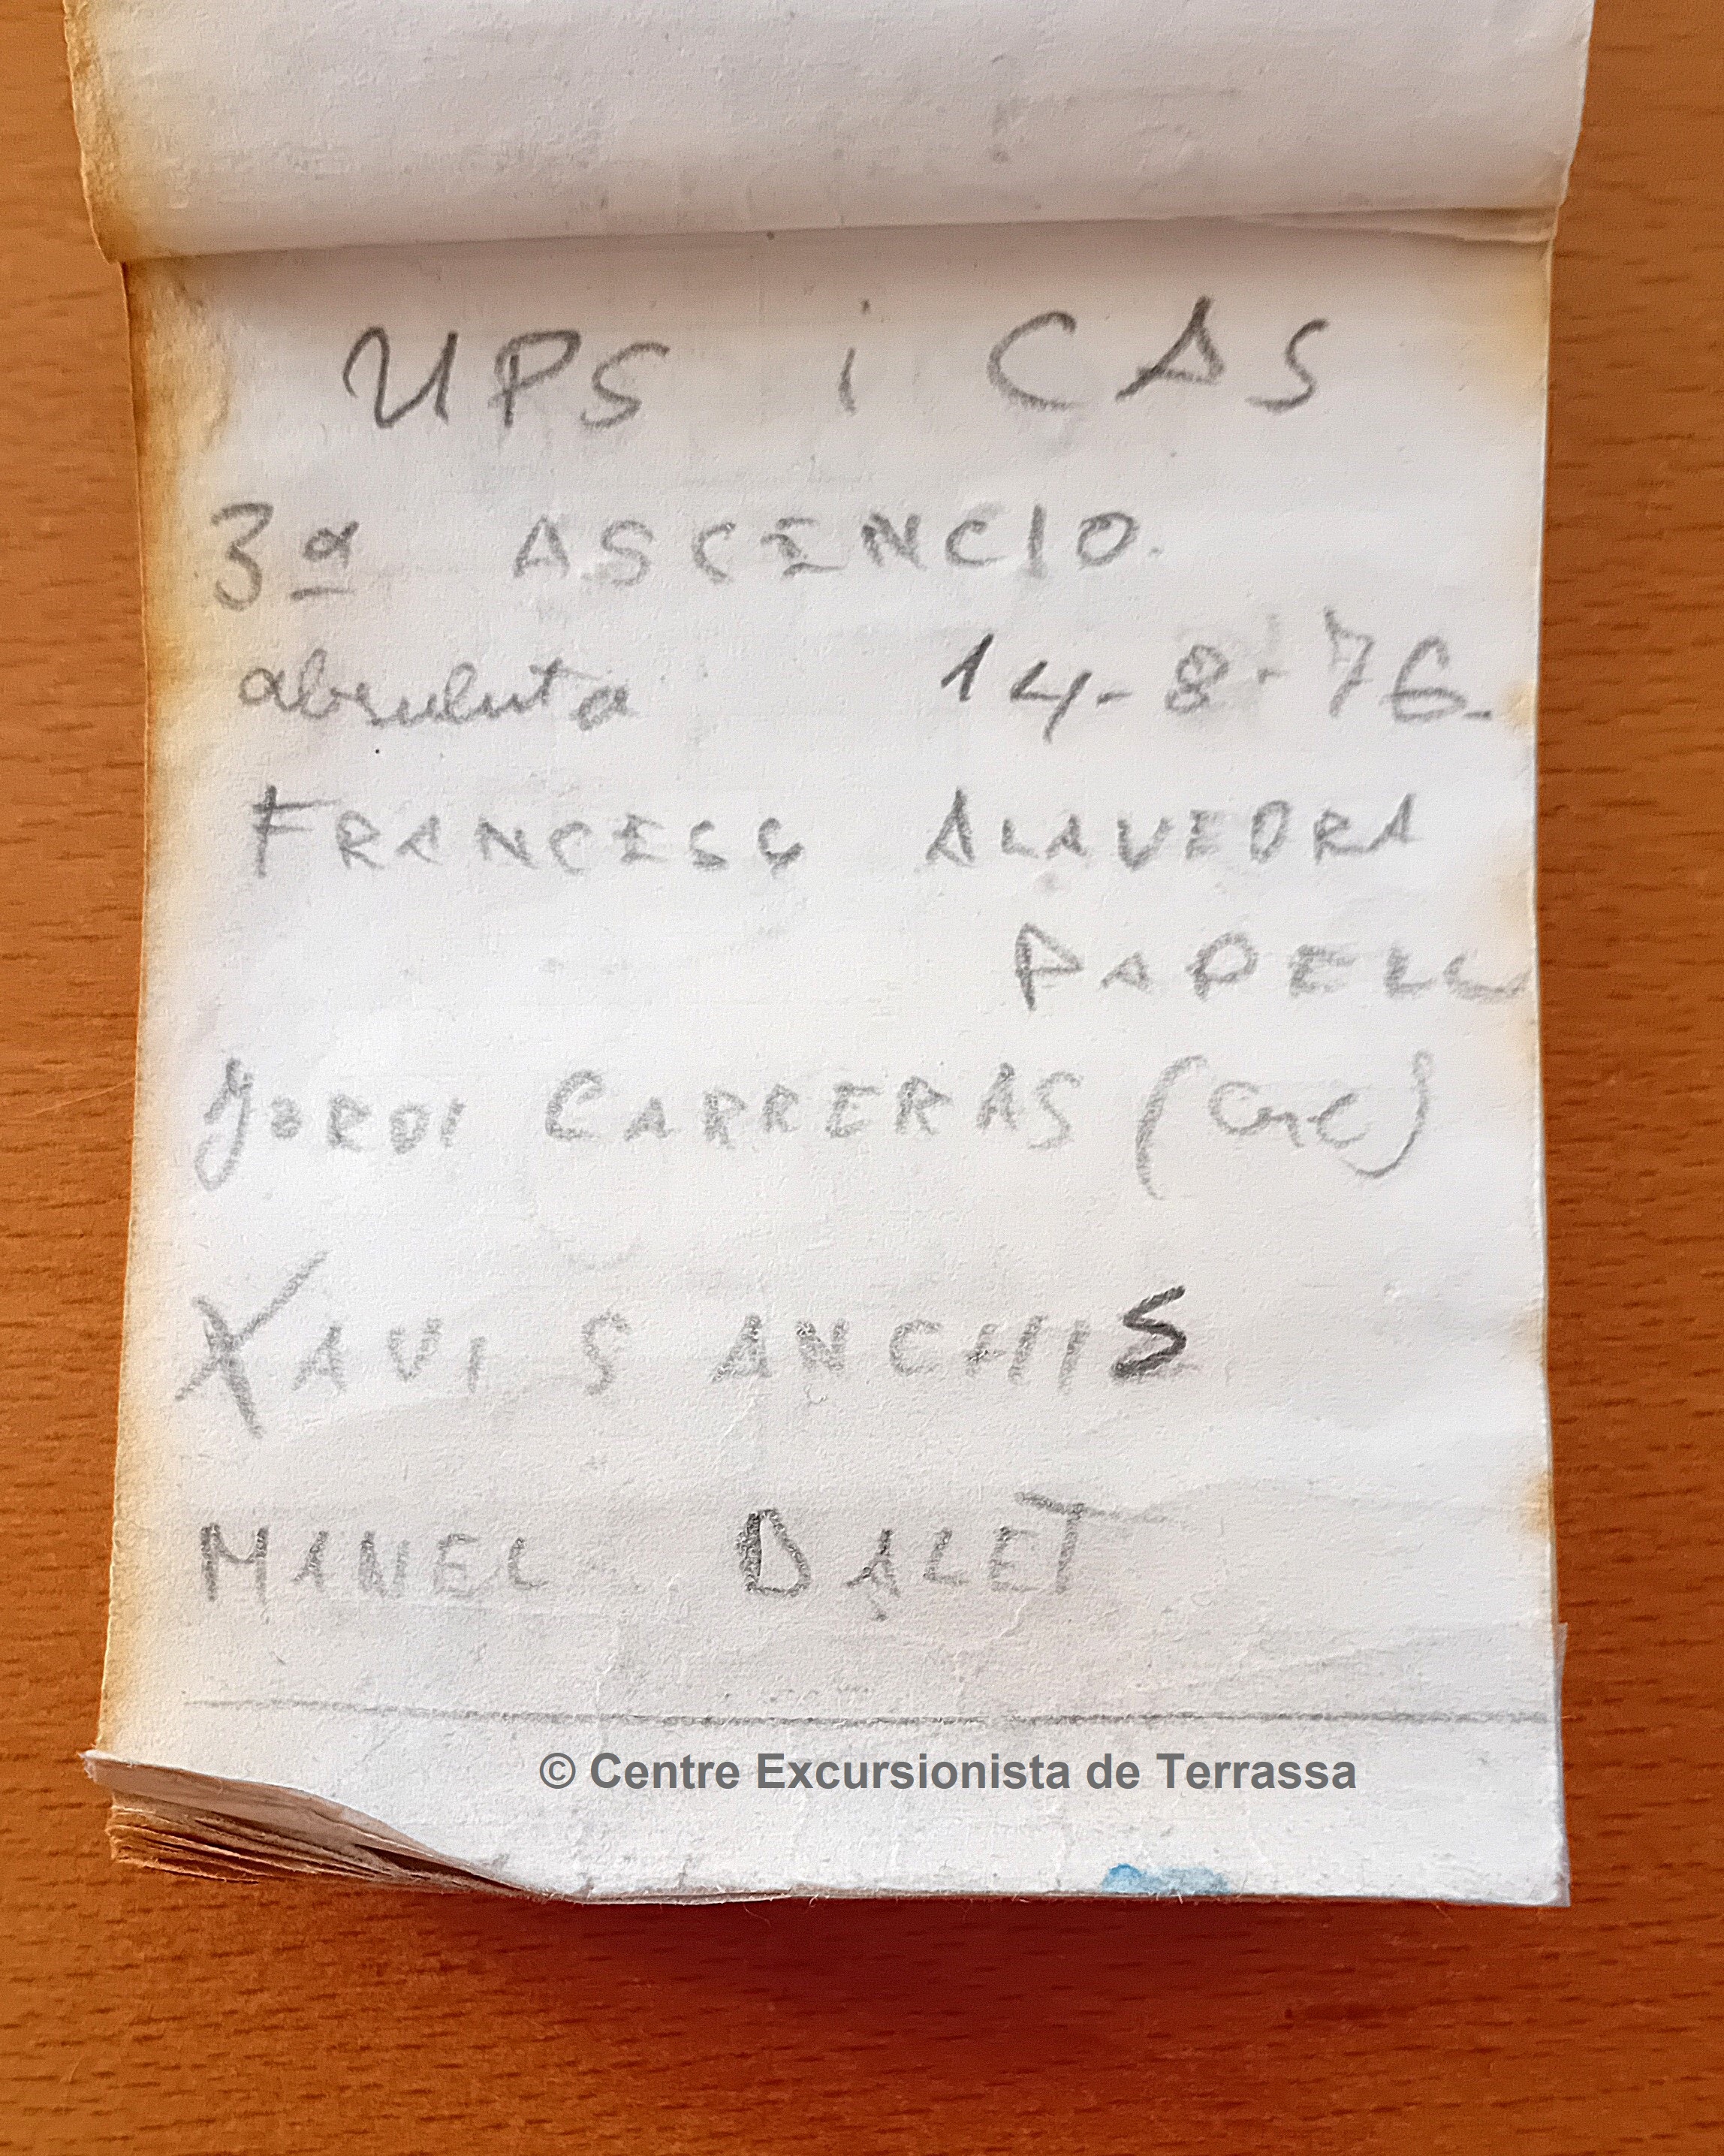 UPS i CAS
3ª ASCENCIO.
absoluta 14-8-76.
FRANCESC ALAVEDRA
PAPELL
JORDI CARRERAS (CIC)
XAVI SANCHIS
MANEL BALET
© Centre Excursionista de Terrassa